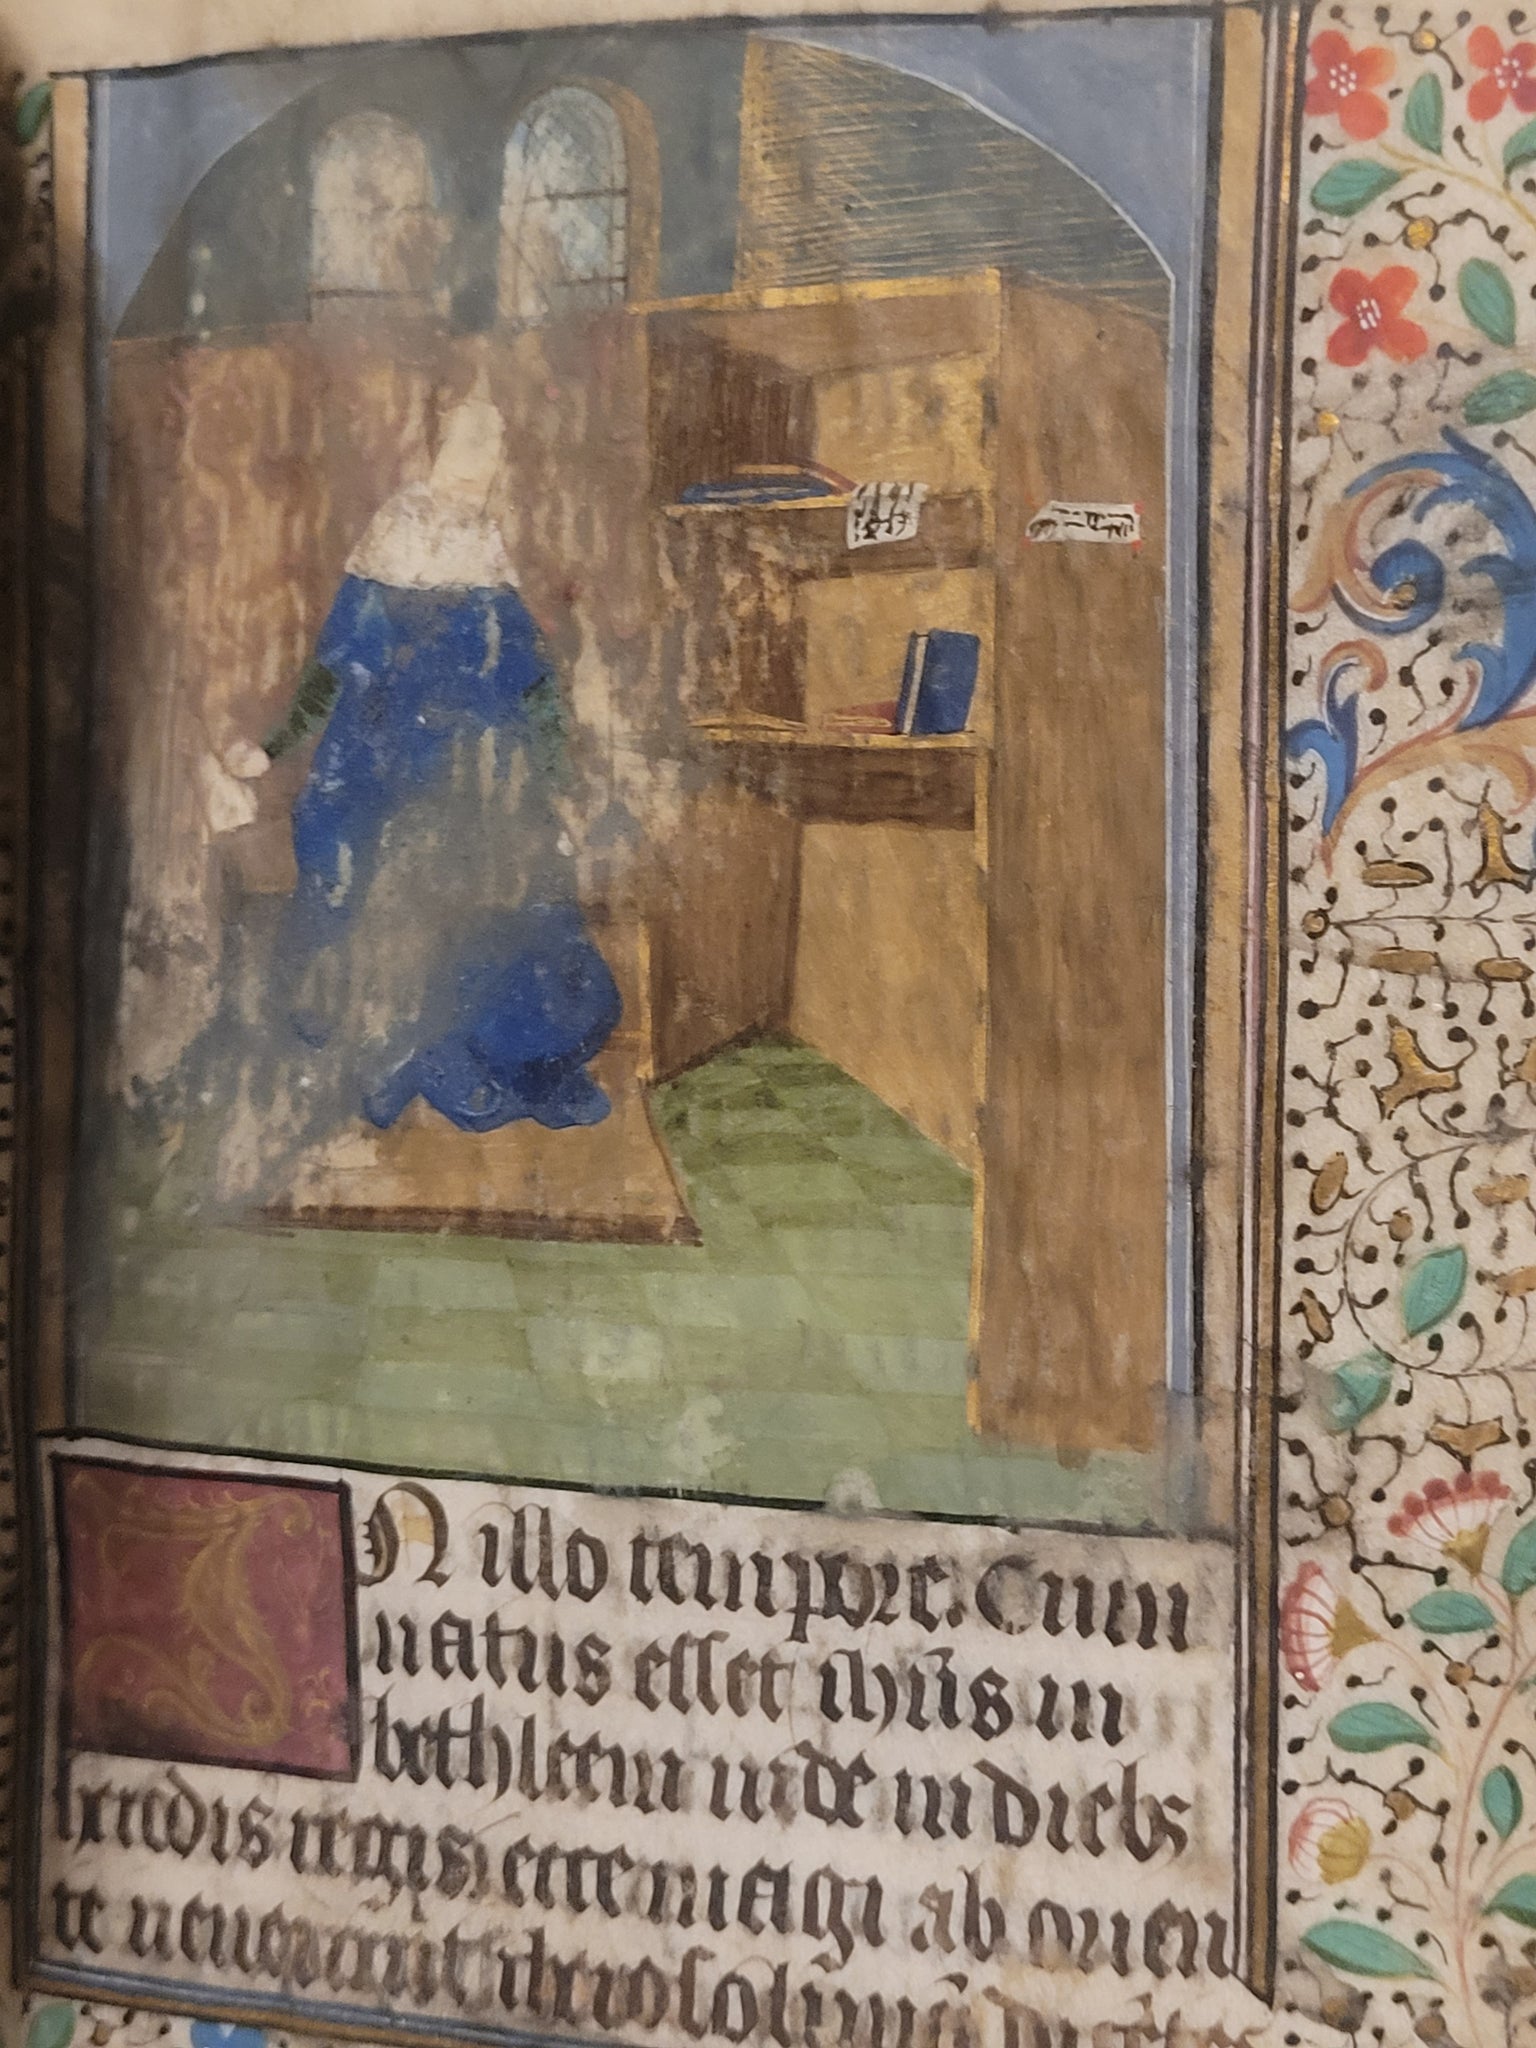 IN illo tempore. Cum
natus esset ihūs in
bethleem iude in diebs
herodis regis ecce magi ab orien
te uenerunt iherosolimā dicentes